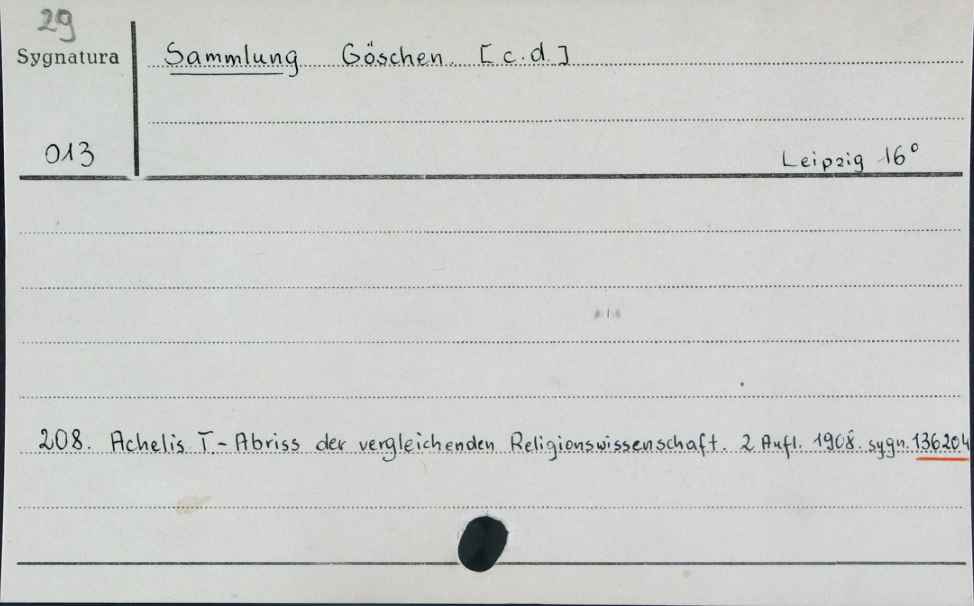 29
Sygnatura
Sammlung Göschen. [c.d.]
013
Leipzig 16°
208. Achelis T.- Abriss der vergleichenden Religionswissenschaft. 2 Aufl. 1908. sygn. 136204